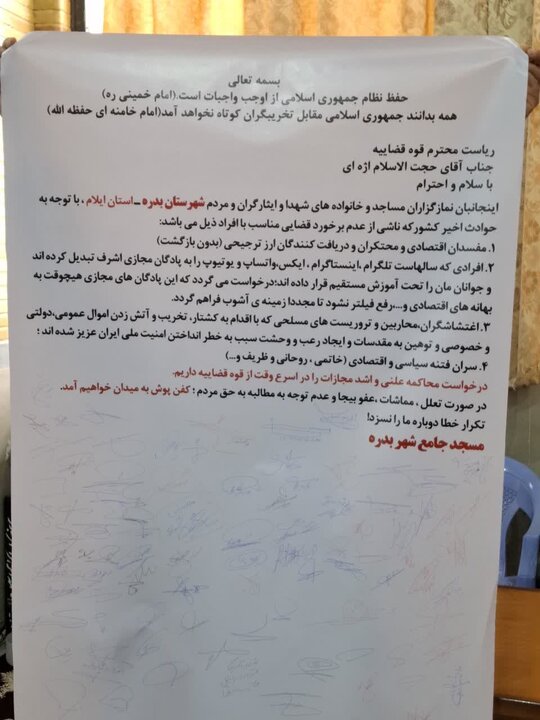 بسمه تعالی
حفظ نظام جمهوری اسلامی از اوجب واجبات است.(امام خمینی ره)
همه بدانند جمهوری اسلامی مقابل تخریبگران کوتاه نخواهد آمد(امام خامنه ای حفظه الله)
ریاست محترم قوه قضاییه
جناب آقای حجت الاسلام اژه ای
با سلام و احترام
اینجانبان نمازگزاران مساجد و خانواده های شهدا و ایثارگران و مردم شهرستان بدره ـ استان ایلام ، با توجه به
حوادث اخیر کشورکه ناشی از عدم برخورد قضایی مناسب با افراد ذیل می باشد:
۱. مفسدان اقتصادی و محتکران و دریافت کنندگان ارز ترجیحی (بدون بازگشت)
۲. افرادی که سالهاست تلگرام ،اینستاگرام ، ایکس،واتساپ و یوتیوپ را به پادگان مجازی اشرف تبدیل کرده اند
و جوانان مان را تحت آموزش مستقیم قرار داده اند؛درخواست می گردد که این پادگان های مجازی هیچوقت به
بهانه های اقتصادی و...،رفع فیلتر نشود تا مجددا زمینه ی آشوب فراهم گردد.
۳. اغتشاشگران،محاربین و تروریست های مسلحی که با اقدام به کشتار، تخریب و آتش زدن اموال عمومی،دولتی
و خصوصی و توهین به مقدسات و ایجاد رعب و وحشت سبب به خطر انداختن امنیت ملی ایران عزیز شده اند ؛
۴. سران فتنه سیاسی و اقتصادی (خاتمی ، روحانی و ظریف و...)
درخواست محاکمه علنی و اشد مجازات را در اسرع وقت از قوه قضاییه داریم.
در صورت تعلل ، مماشات ،عفو بیجا و عدم توجه به مطالبه به حق مردم ؛ کفن پوش به میدان خواهیم آمد.
تکرار خطا دوباره ما را نسزد!
مسجد جامع شهر بدره